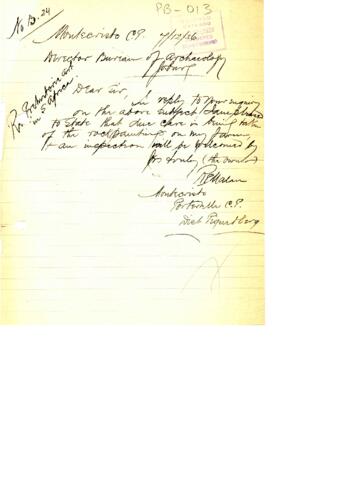 PB-013
No B.24
Montecristo C.P. 7/12/36
Director Bureau of Archaeology
Joburg
Re Prehistoric art
in S Africa
Dear Sir,
In reply to your enquiry
on the above subject I am pleased
to state that due care is being taken
of the rock paintings on my farm,
& an inspection will be welcomed by
yrs truly (the owner)
Malan
Montecristo
Porterville C.P.
Dist Piquetberg